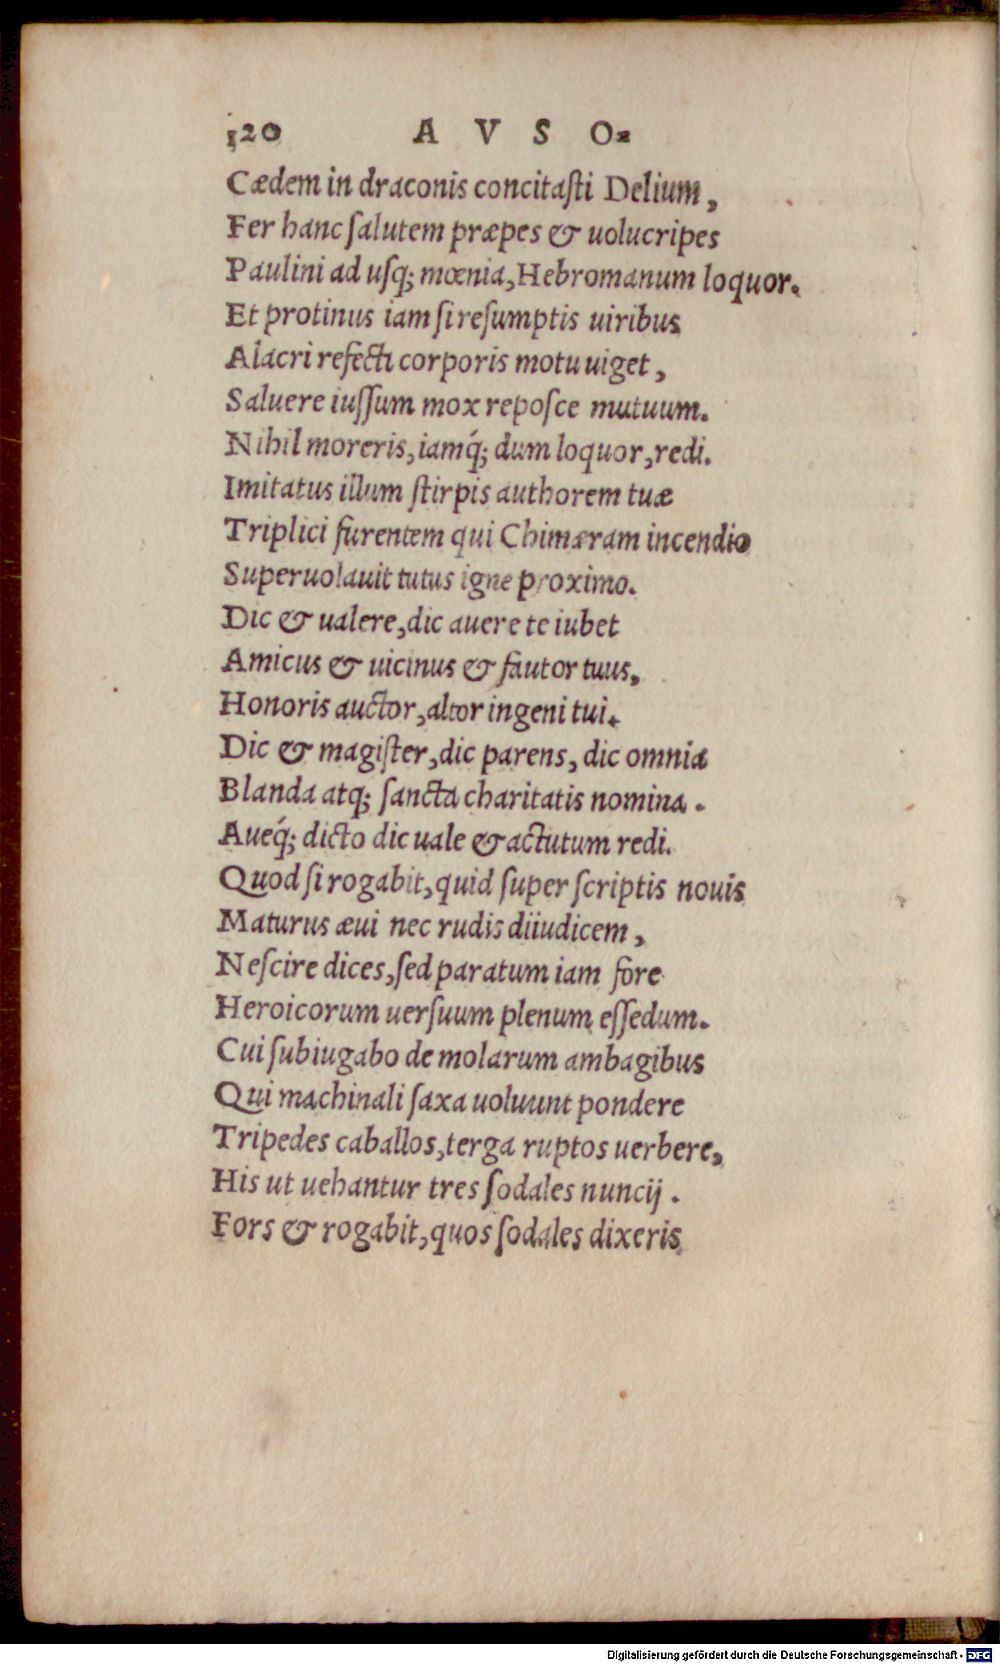 120 A V S O⸗
Cædem in draconis concitaſti Delium,
Fer hanc ſalutem præpes & uolucripes
Paulini ad uſq; mœnia, Hebromanum loquor.
Et protinus iam ſi reſumptis uiribus
Alacri refecti corporis motu uiget,
Saluere iuſſum mox repoſce mutuum.
Nihil moreris, iamq́; dum loquor, redi.
Imitatus illum ſtirpis authorem tuæ
Triplici furentem qui Chimæram incendio
Superuolauit tutus igne proximo.
Dic & ualere, dic auere te iubet
Amicus & uicinus & fautor tuus,
Honoris auctor, altor ingeni tui.
Dic & magiſter, dic parens, dic omnia
Blanda atq; ſancta charitatis nomina.
Aueq́; dicto dic uale & actutum redi.
Quod ſi rogabit, quid ſuper ſcriptis nouis
Maturus æui nec rudis diiudicem,
Neſcire dices, ſed paratum iam fore
Heroicorum uerſuum plenum eſſedum.
Cui ſubiugabo de molarum ambagibus
Qui machinali ſaxa uoluunt pondere
Tripedes caballos, terga ruptos uerbere,
His ut uehantur tres ſodales nuncij.
Fors & rogabit, quos ſodales dixeris
Digitalisierung gefördert durch die Deutsche Forschungsgemeinschaft - DFG